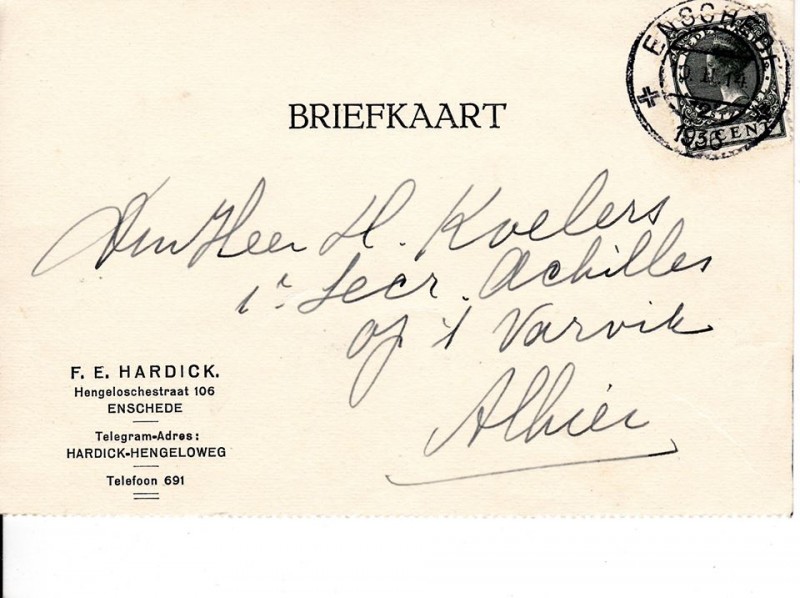 BRIEFKAART
ENSCHEDE
1936
NEDERLAND
CENT
Den Heer H. Koelers
1e Secr. Achilles
op 't Varvik
Alhier
F. E. HARDICK.
Hengeloschestraat 106
ENSCHEDE
Telegram-Adres:
HARDICK-HENGELOWEG
Telefoon 691